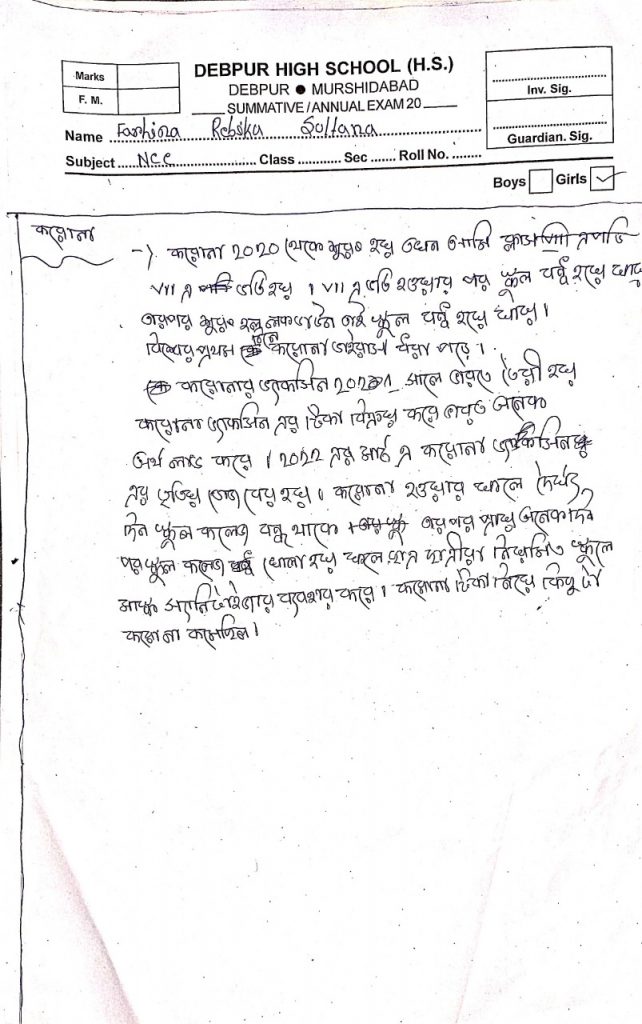 Marks
F. M.
DEBPUR HIGH SCHOOL (H.S.)
DEBPUR ● MURSHIDABAD
SUMMATIVE / ANNUAL EXAM 20
Inv. Sig.
Guardian. Sig.
Name Farhina Rebika Sultana
Subject NCC Class Sec Roll No.
Boys Girls ✓
করোনা
→ করোনা 2020 থেকে শুরু হয় তখন আমি
VII এ ভর্তি হয় । VII এ ভর্তি হওয়ার পর স্কুল বন্ধ হয়ে যায়
তারপর শুরু হল লকডাউন তাই স্কুল বন্ধ হয়ে যায় ।
বিশ্বের প্রথম করোনা ভাইরাস ধরা পড়ে ।
করোনার ভ্যাকসিন 2021 সালে ভারতে তৈরী হয়
করোনা ভ্যাকসিন এর টিকা বিক্রয় করে ভারত অনেক
অর্থ লাভ করে । 2022 এর মার্চ এ করোনা ভ্যাকসিন
এর তৃতীয় বের হয় । করোনা হওয়ার ফলে দীর্ঘ
দিন স্কুল কলেজ বন্ধ থাকে তারপর প্রায় অনেকদিন
পর স্কুল কলেজ খোলা হয় ফলে ছাত্র ছাত্রীরা নিয়মিত স্কুলে
মাস্ক স্যানিটাইজার ব্যবহার করে । করোনা টিকা নিয়ে কিছু টা
করোনা কমেছিল ।